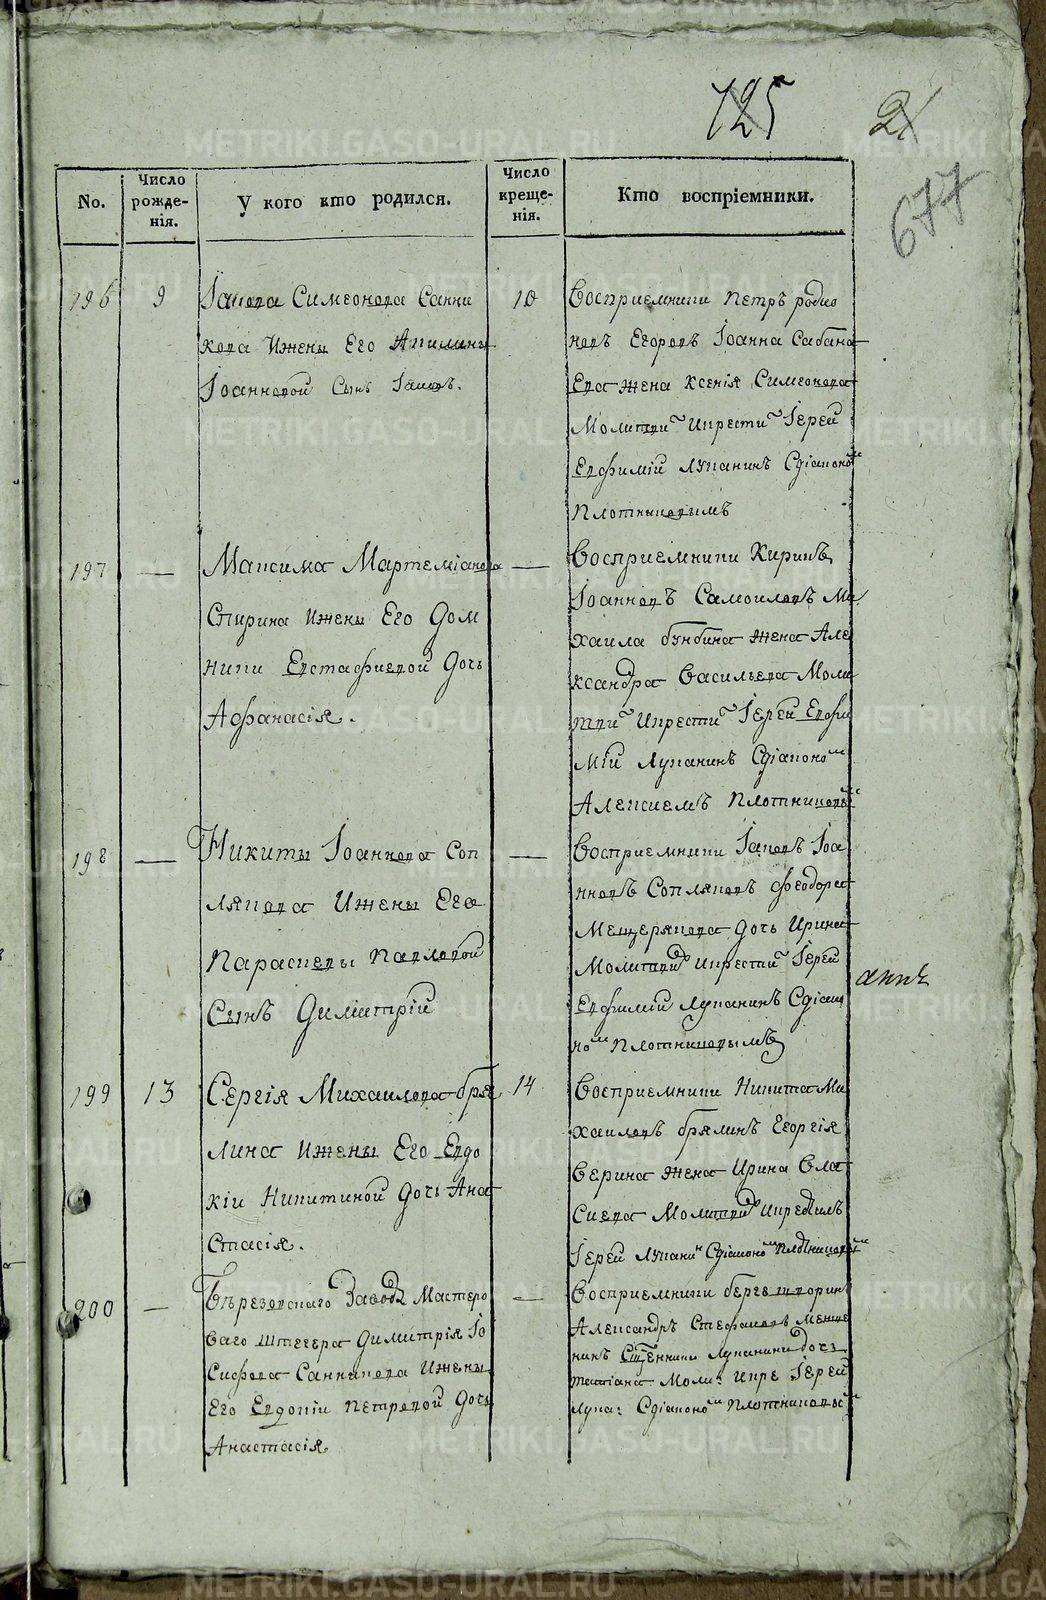 125 21
677
No.
Число рожде-нія.
У кого кто родился.
Число креще-нія.
Кто воспріемники.
196 9
Іакова Симеонова Санни
кова ижены Его Акилины
Іоанновой Сынъ Іаковъ.
10
Восприемники Петръ родио
новъ Егоровъ Іоанна Сабана
Ева жена Ксенія Симеонова
Молитви Икрести Іерей
Евфимій Лукaнинъ Сдіаконо
Плотниковымъ
197 —
Максима Мартеміанова
Спирина ижены Его Дом
ники Евстафиевой Дочь
Афанасія.
—
Восприемники Киринъ
Іоанновъ Самоиловъ Ми
хаила бунбина жена Але
ксандра Васильева Моли
тви Икрести Іерей Евфи
мій Луканинъ Сдіаконо
Алексиемъ Плотниковы
198 —
Никиты Іоаннова Соп
лякова ижены Его
Параскевы Павловой
Сынъ Димитрій
—
Восприемники Іаковъ Іоа
нновъ Сопляковъ Феодора
Мещерякова дочь Ирина
Молитви Икрести Іерей
Евфимій Луканинъ Сдіако
но Плотниковымъ
199 13
Сергія Михаилова бря
лина ижены Его Евдо
кіи Никитиной дочь Ана
стасія.
14
Восприемники Никита Ми
хаиловъ брялинъ Егоргія
Верина жена Ирина Вла
сиева Молитви
Іерей Лукани Сдіаконо
200 —
Бѣрезовскаго Завода Мастеро
ваго штегера Димитрія Іо
сифова Санникова ижены
Его Евдокіи Петровой Дочь
Анастасія
—
Восприемники
Александръ Стефановъ
Луканина дочь
татіана Моли: Икре Іерей
Лука: Сдіаконо Плотниковы